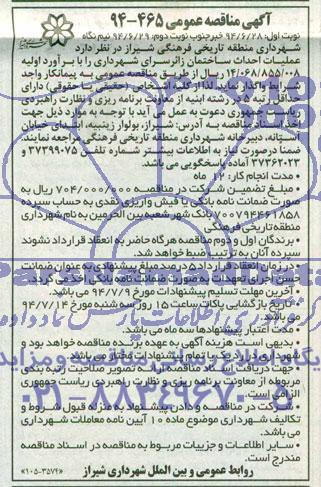 آگهی مناقصه عمومی ۴۶۵-۹۴
نوبت اول: ۹۴/۶/۲۸ خبرجنوب نوبت دوم: ۹۴/۶/۲۹ نیم نگاه
شهرداری منطقه تاریخی فرهنگی شیراز در نظر دارد
عملیات احداث ساختمان زائرسرای شهرداری را با برآورد اولیه
۱۴/۰۶۸/۸۵۵/۰۰۸ ریال از طریق مناقصه عمومی به پیمانکار واجد
شرایط واگذار نماید. لذا از کلیه اشخاص (حقیقی یا حقوقی) دارای
حداقل رتبه ۵ در رشته ابنیه از معاونت برنامه ریزی و نظارت راهبردی
ریاست جمهوری دعوت به عمل می آید با توجه به موارد ذیل جهت
اخذ اسناد مناقصه به آدرس: شیراز، بولوار زینبیه، ابتدای خیابان
آستانه، دبیرخانه شهرداری منطقه تاریخی فرهنگی مراجعه نمایند.
ضمنا در صورت نیاز به اطلاعات بیشتر شماره تلفن ۳۷۳۹۹۰۷۵ و
۳۷۳۶۲۰۲۳ آماده پاسخگویی می باشد.
• مدت انجام کار: ۱۲ ماه
• مبلغ تضمین شرکت در مناقصه ۷۰۴/۰۰۰/۰۰۰ ریال به
صورت ضمانت نامه بانکی یا فیش واریزی نقدی به حساب سپرده
۷۰۰۷۹۴۴۶۱۸۵۸ بانک شهر شعبه بین الحرمین به نام شهرداری
منطقه تاریخی فرهنگی
• برندگان اول و دوم مناقصه هرگاه حاضر به انعقاد قرارداد نشوند
سپرده آنان به ترتیب ضبط خواهد شد.
• در زمان انعقاد قرارداد ۵ درصد مبلغ پیشنهادی به عنوان ضمانت
حسن اجرای تعهدات به صورت ضمانت نامه بانکی اخذ می گردد.
• آخرین مهلت تسلیم پیشنهادات مورخ ۹۴/۷/۹ می باشد.
• تاریخ بازگشایی پاکات ساعت ۱۵ روز سه شنبه مورخ ۹۴/۷/۱۴
می باشد.
• مدت اعتبار پیشنهادها سه ماه می باشد.
• بدیهی است هزینه آگهی به عهده برنده مناقصه خواهد بود و
شهرداری در رد یک یا تمام پیشنهادات مختار می باشد.
• جهت دریافت اسناد مناقصه ارائه تصویر صلاحیت رتبه بندی
مربوطه از معاونت برنامه ریزی و نظارت راهبردی ریاست جمهوری
الزامی است.
• شرکت در مناقصه و دادن پیشنهاد به منزله قبول شروط و
تکالیف شهرداری موضوع ماده ۱۰ آیین نامه معاملات شهرداری
می باشد.
• سایر اطلاعات و جزییات مربوط به مناقصه در اسناد مناقصه
مندرج است.
روابط عمومی و بین الملل شهرداری شیراز
«۱۰۵-۳۵۷۴»
۰۲۱-۸۸۳۴۹۶۷۰-۵